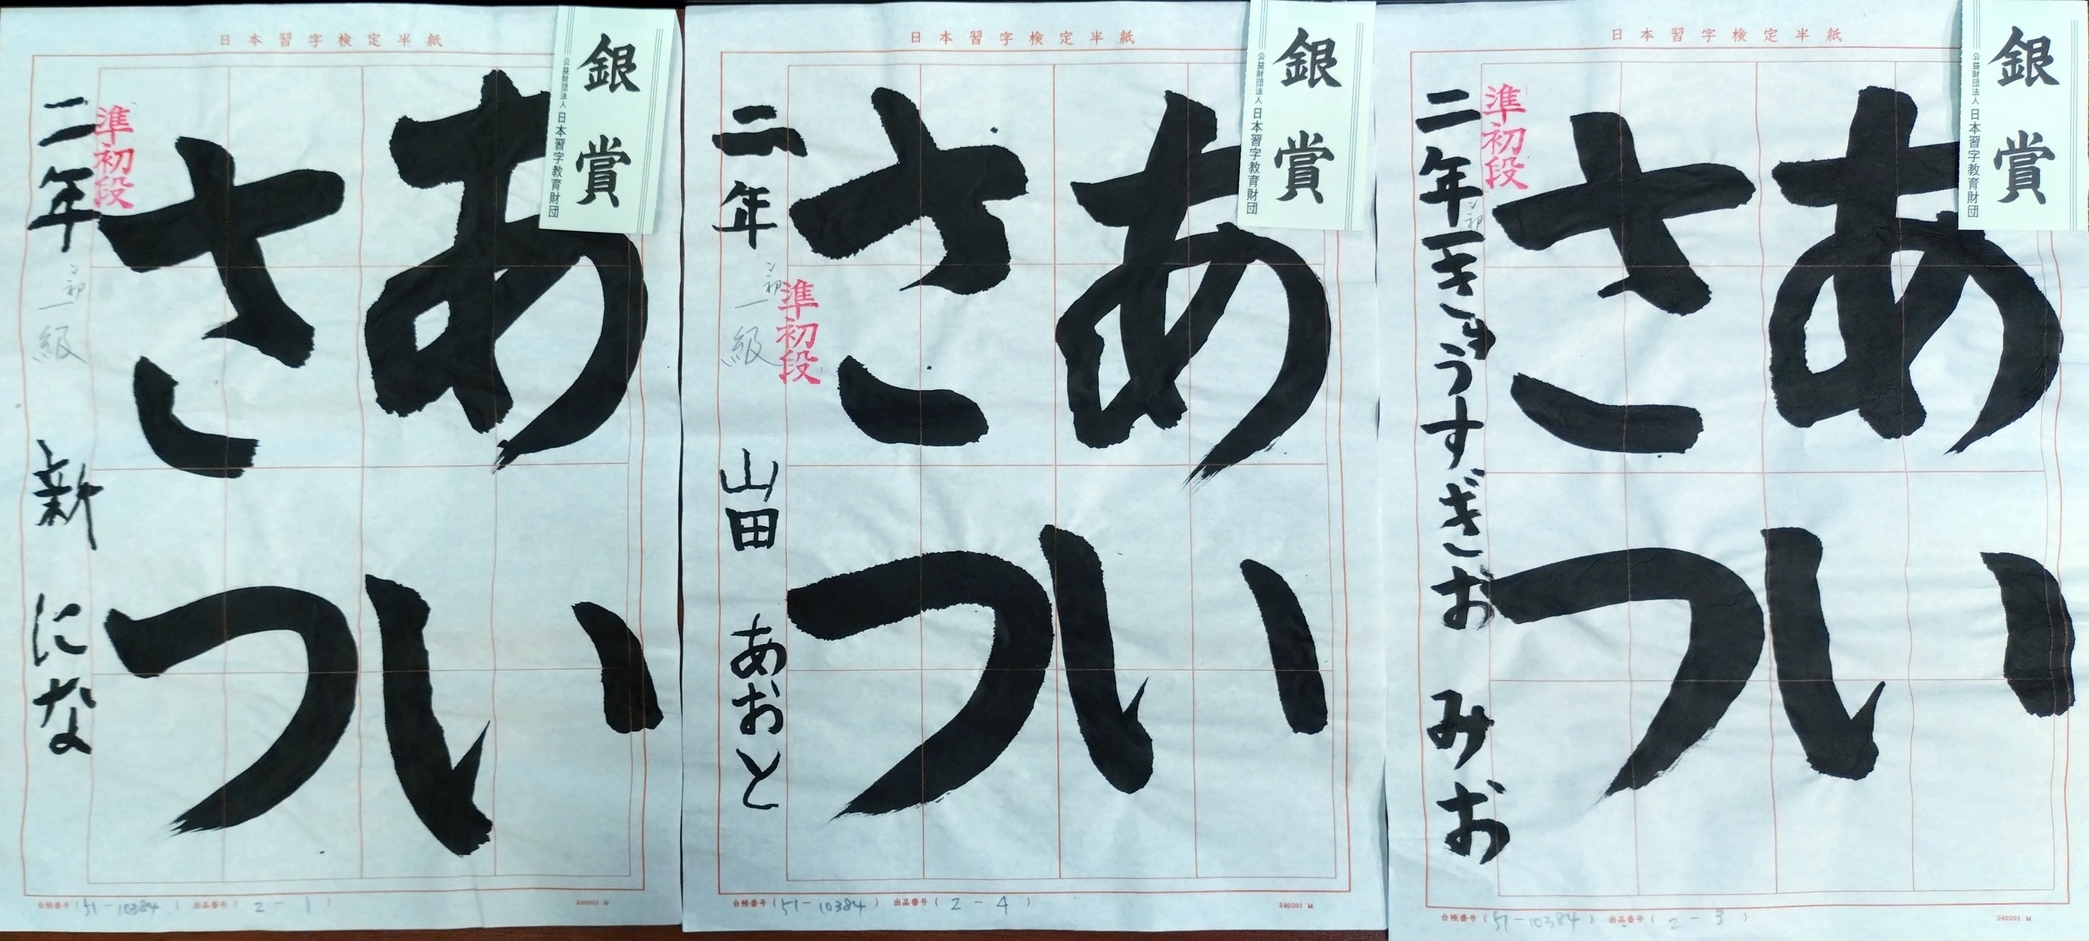 日本習字検定半紙
銀賞
公益財団法人 日本習字教育財団
あい
さつ
準初段
二年
一級
新 にな
台帳番号(51-10384) 出品番号(2-1)
240201 M
日本習字検定半紙
銀賞
公益財団法人 日本習字教育財団
あい
さつ
準初段
二年
一級
山田 あおと
台帳番号(51-10384) 出品番号(2-4)
240201 M
日本習字検定半紙
銀賞
公益財団法人 日本習字教育財団
あい
さつ
準初段
二年
みお
台帳番号(51-10384) 出品番号(2-3)
240201 M